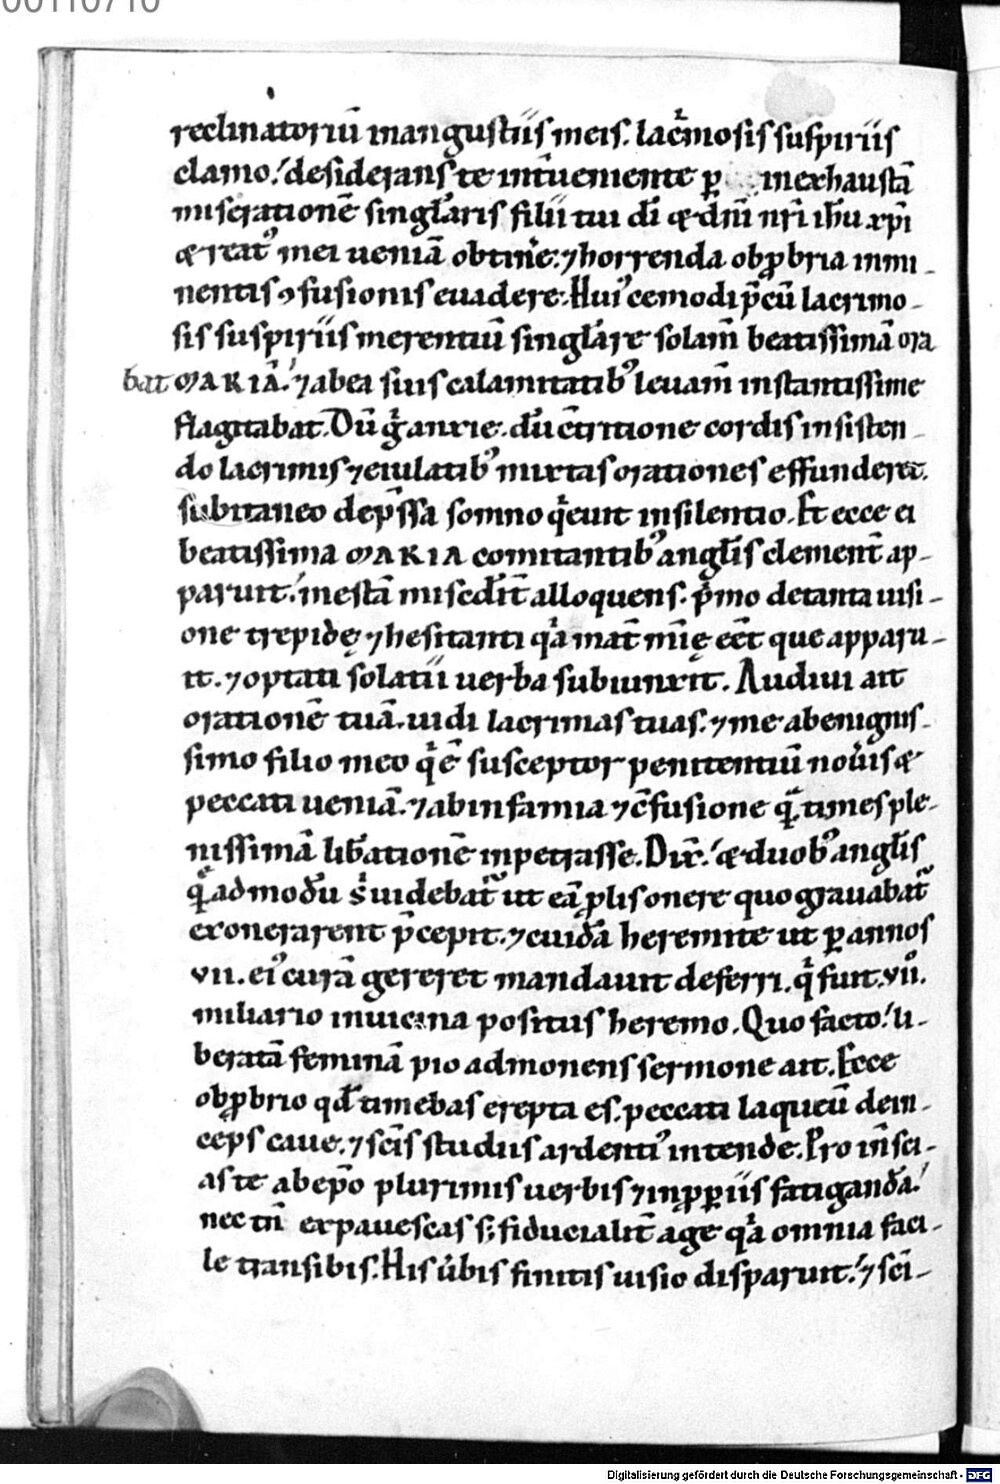 00110710
reclinatoriū in angustiis meis. lac̄mosis suspiriis
clamo. desiderans te int̄ueniente ꝑ inexhaustā
miserationē singl̄aris filii tui dī & dn̄i nr̄i ih̄u xp̄i
& reatꝰ mei ueniā obtine. ⁊ horrenda obꝓbria inmi-
nentis ꝯfusionis euadere. Huiꝰcemodi p̄cū lacrimo-
sis suspiriis merentiū singl̄are solam̄ beatissimā ora
bat MARIĀ. ⁊ ab ea suis calamitatibꝰ leuam̄ instantissime
flagitabat. Dū g̊ anxie. dū ꝯtritione cordis insisten-
do lacrimis ⁊ eiulatibꝰ mixtas orationes effunderet.
subitaneo dep̄ssa somno q̇euit in silentio. Et ecce ei
beatissima MARIA comitantibꝰ angl̄is clement̄ ap-
paruit. mestā misedīt alloquens. p̄mo de tanta uisi-
one trepidę ⁊ hesitanti qͣ mat̄ mīę eēt que apparu-
it. ⁊ optati solatii uerba subiunxit. Audiui ait
orationē tuā. uidi lacrimas tuas. ⁊ me a benignis-
simo filio meo qͥ ē susceptor penitentiū noūis &
peccati ueniā. ⁊ ab infamia ⁊ ꝯfusione qͣ times ple-
nissimā lib̄ationē inpetrasse. Dix̄. & duobꝰ angl̄is
q̄admodū s̊ uidebat᷑ ut eā ꝓlis onere quo grauabat᷑
exonerarent p̄cepit. ⁊ cuidā heremite ut ꝑ annos
vii. eiꝰ curā gereret mandauit deferri. qͥ fuit. vii̊.
miliario in uicina positus heremo. Quo facto. li-
beratā feminā pio admonens sermone ait. Ecce
obꝓbrio qd̄ timebas erepta es. peccati laqueū dein-
ceps caue. ⁊ scīs studiis ardentiꝰ intende. Pro in̄sci-
as te ab ep̄o plurimis uerbis ⁊ inꝓꝑiis fatigandā.
nec tn̄ expauescas s; fiducialit̄ age qͣ omnia faci-
le transibis. His ūbis finitis uisio disparuit. ⁊ scī-
Digitalisierung gefördert durch die Deutsche Forschungsgemeinschaft - DFG